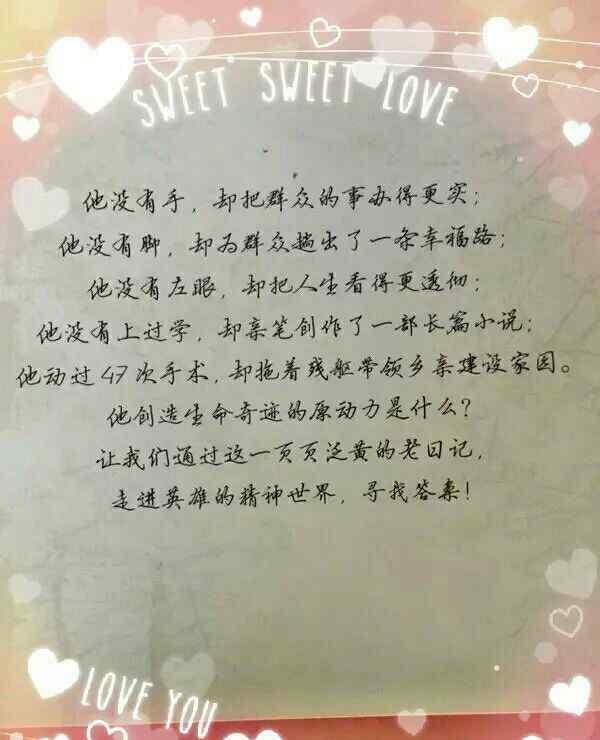 SWEET SWEET LOVE
他没有手，却把群众的事办得更实；
他没有脚，却为群众趟出了一条幸福路；
他没有左眼，却把人生看得更透彻；
他没有上过学，却亲笔创作了一部长篇小说；
他动过47次手术，却拖着残躯带领乡亲建设家园。
他创造生命奇迹的原动力是什么？
让我们通过这一页页泛黄的老日记，
走进英雄的精神世界，寻找答案！
LOVE YOU